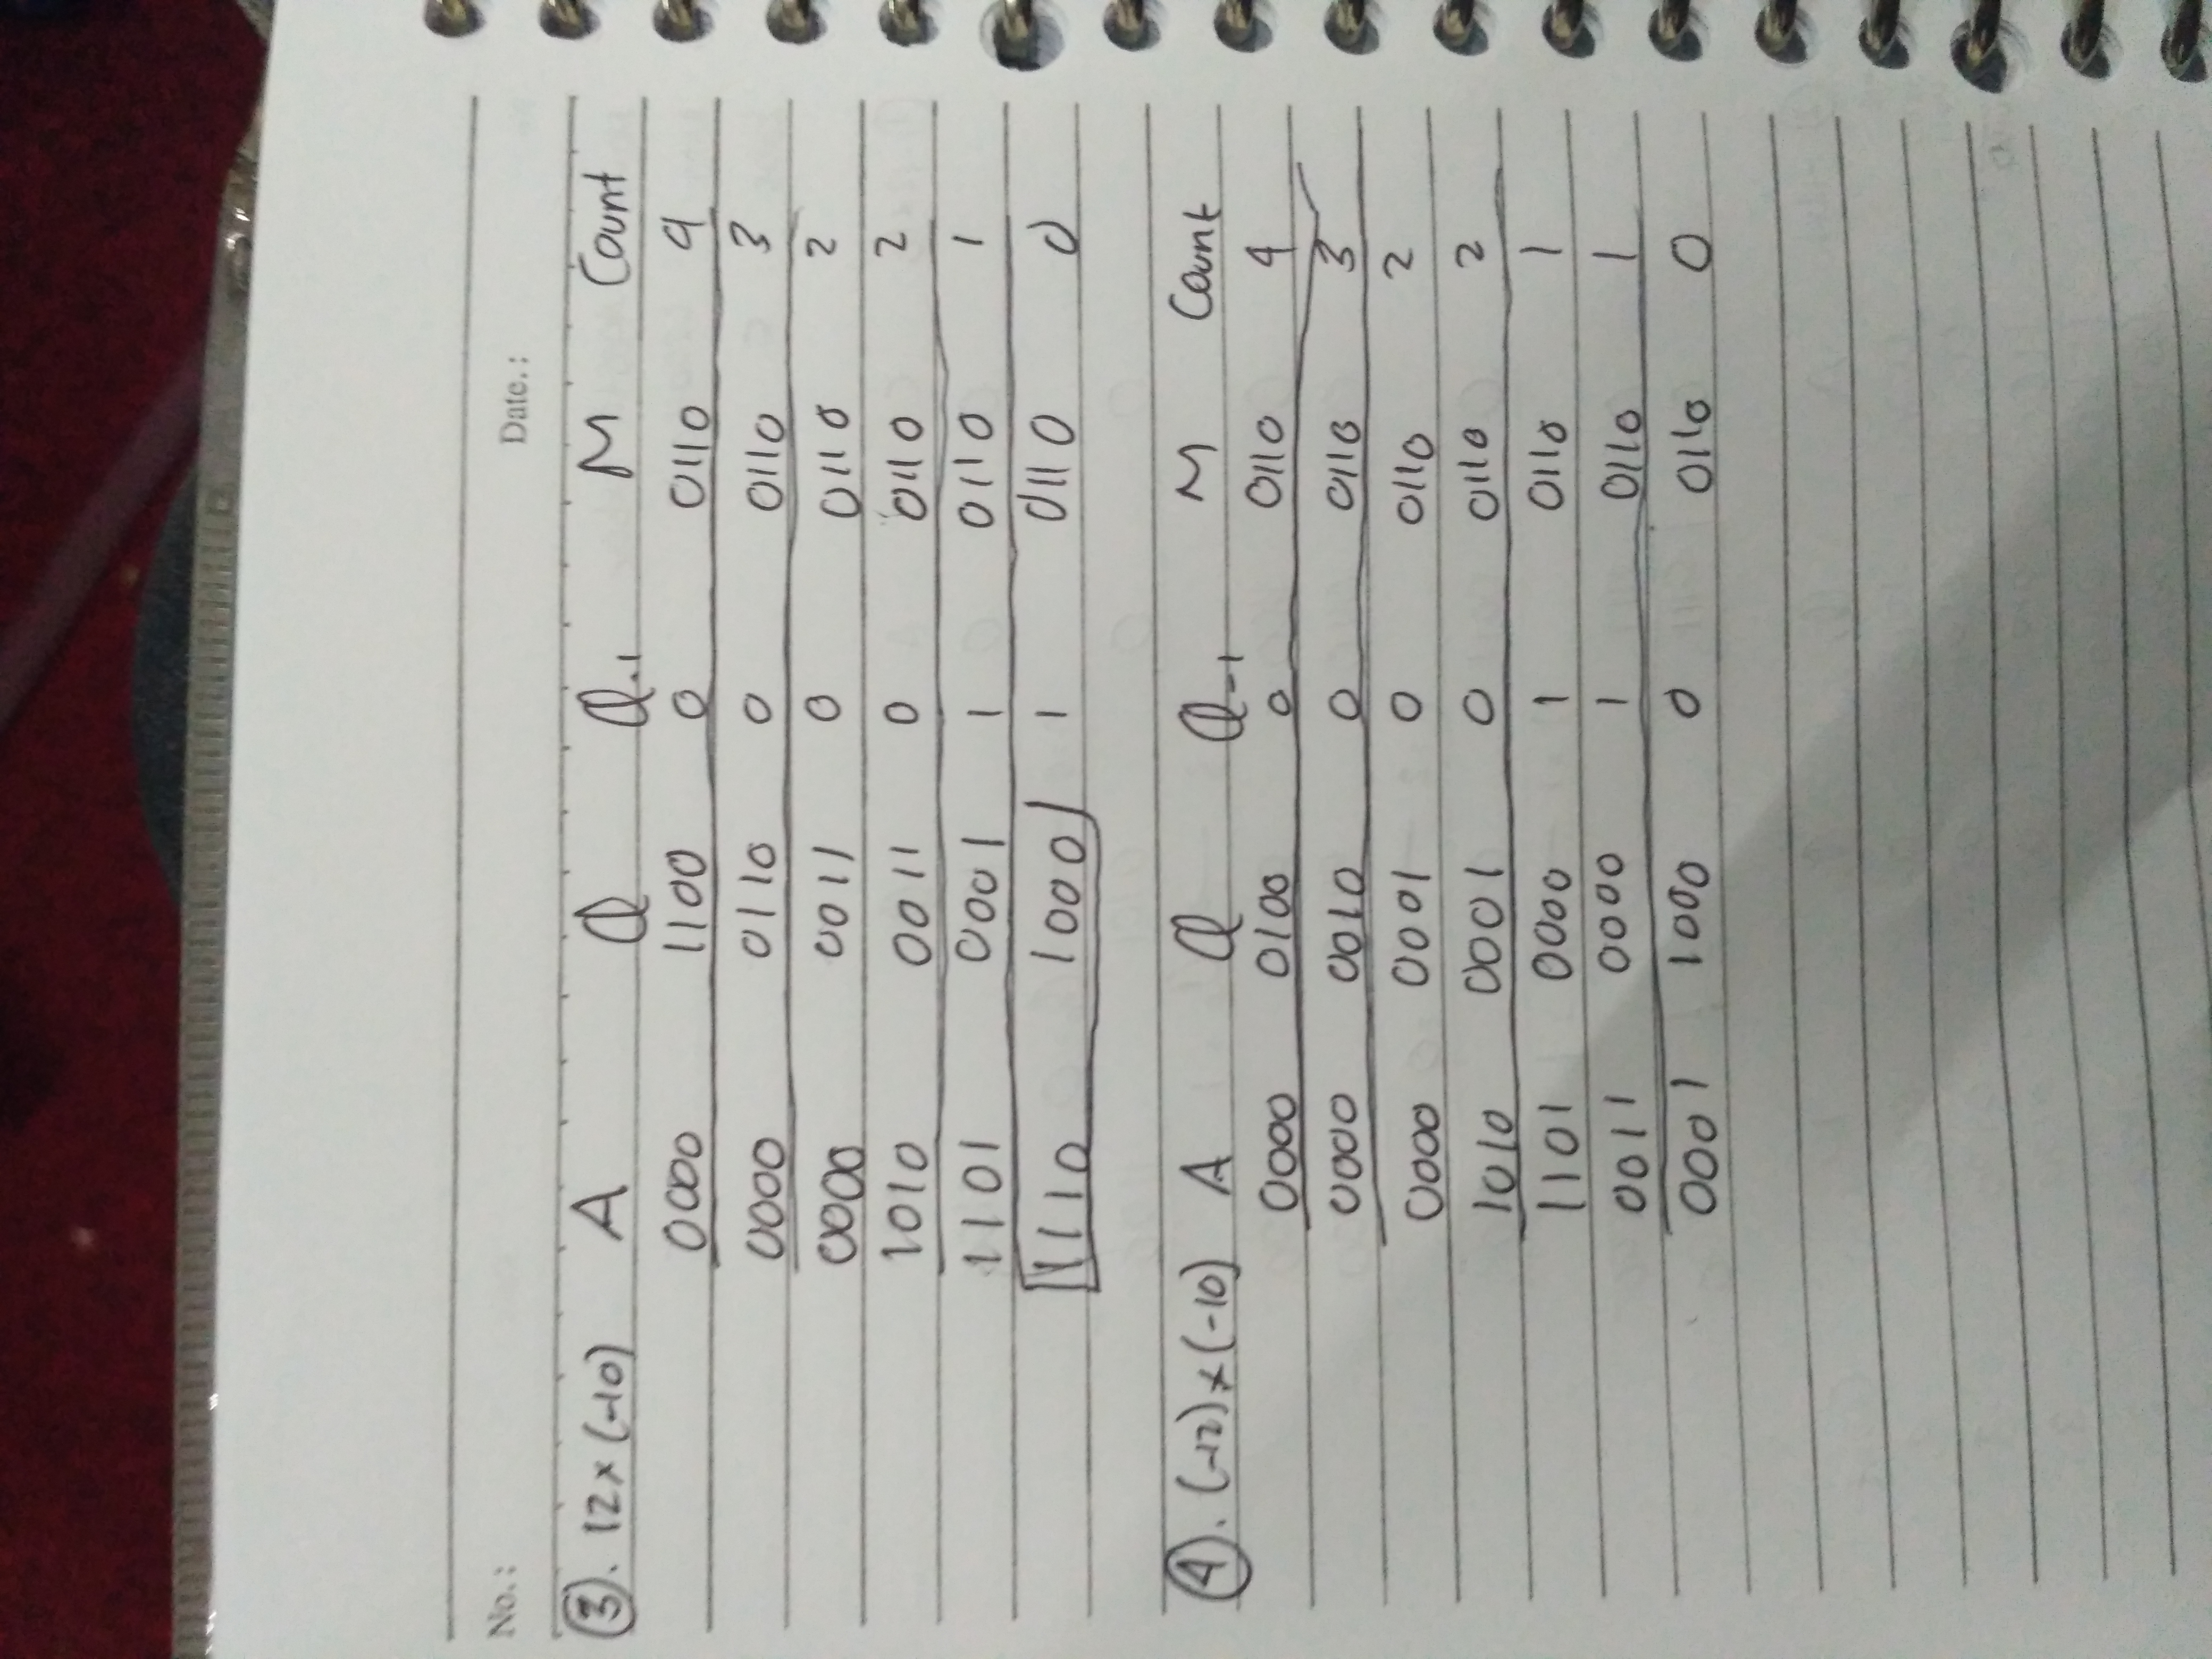 No.: Date.:
③. 12 x (-10) A Q Q-1 M Count
0000 1100 0 0110 4
0000 0110 0 0110 3
0000 0011 0 0110 2
1010 0011 0 0110 2
1101 0001 1 0110 1
1110 1000 1 0110 0
④. (-12) x (-10) A Q Q-1 M Count
0000 0100 0 0110 4
0000 0010 0 0110 3
0000 0001 0 0110 2
1010 0001 0 0110 2
1101 0000 1 0110 1
0011 0000 1 0110 1
0001 1000 0 0110 0